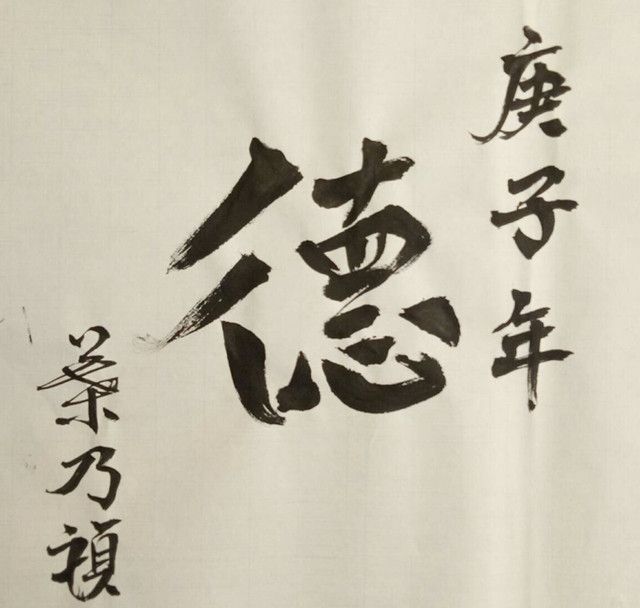 庚子年
德
葉乃禎